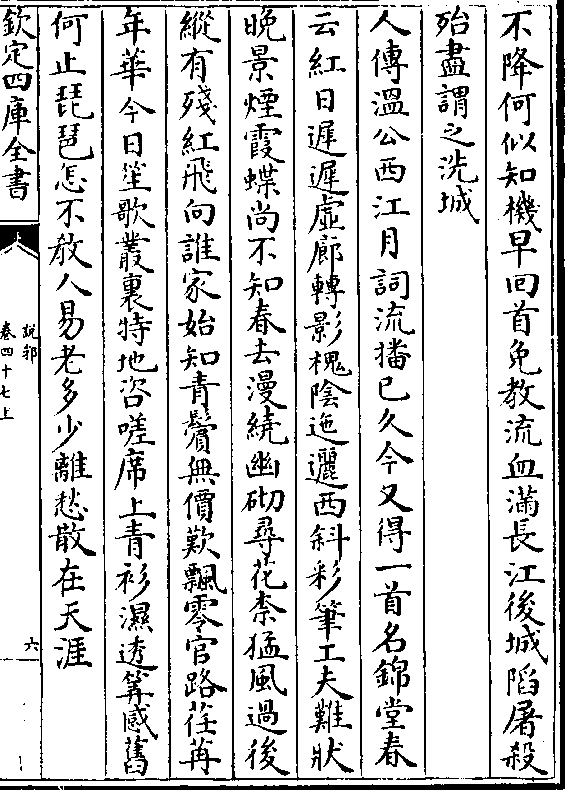 不降何似知機早回首免教流血滿長江後城䧟屠殺
殆盡謂之洗城
人傳溫公西江月詞流播已久今又得一首名錦堂春
云紅日遲遲虛廊轉影槐陰迤邐西斜彩筆工夫難狀
晩景煙霞蝶尚不知春去漫繞幽砌尋花柰猛風過後
縱有殘紅飛向誰家始知青鬢無價歎飄零官路荏苒
年華今日笙歌叢裏特地咨嗟席上青衫濕透筭感舊
何止琵琶怎不敎人易老多少離愁散在天涯
欽定四庫全書
說郛
卷四十七上
六